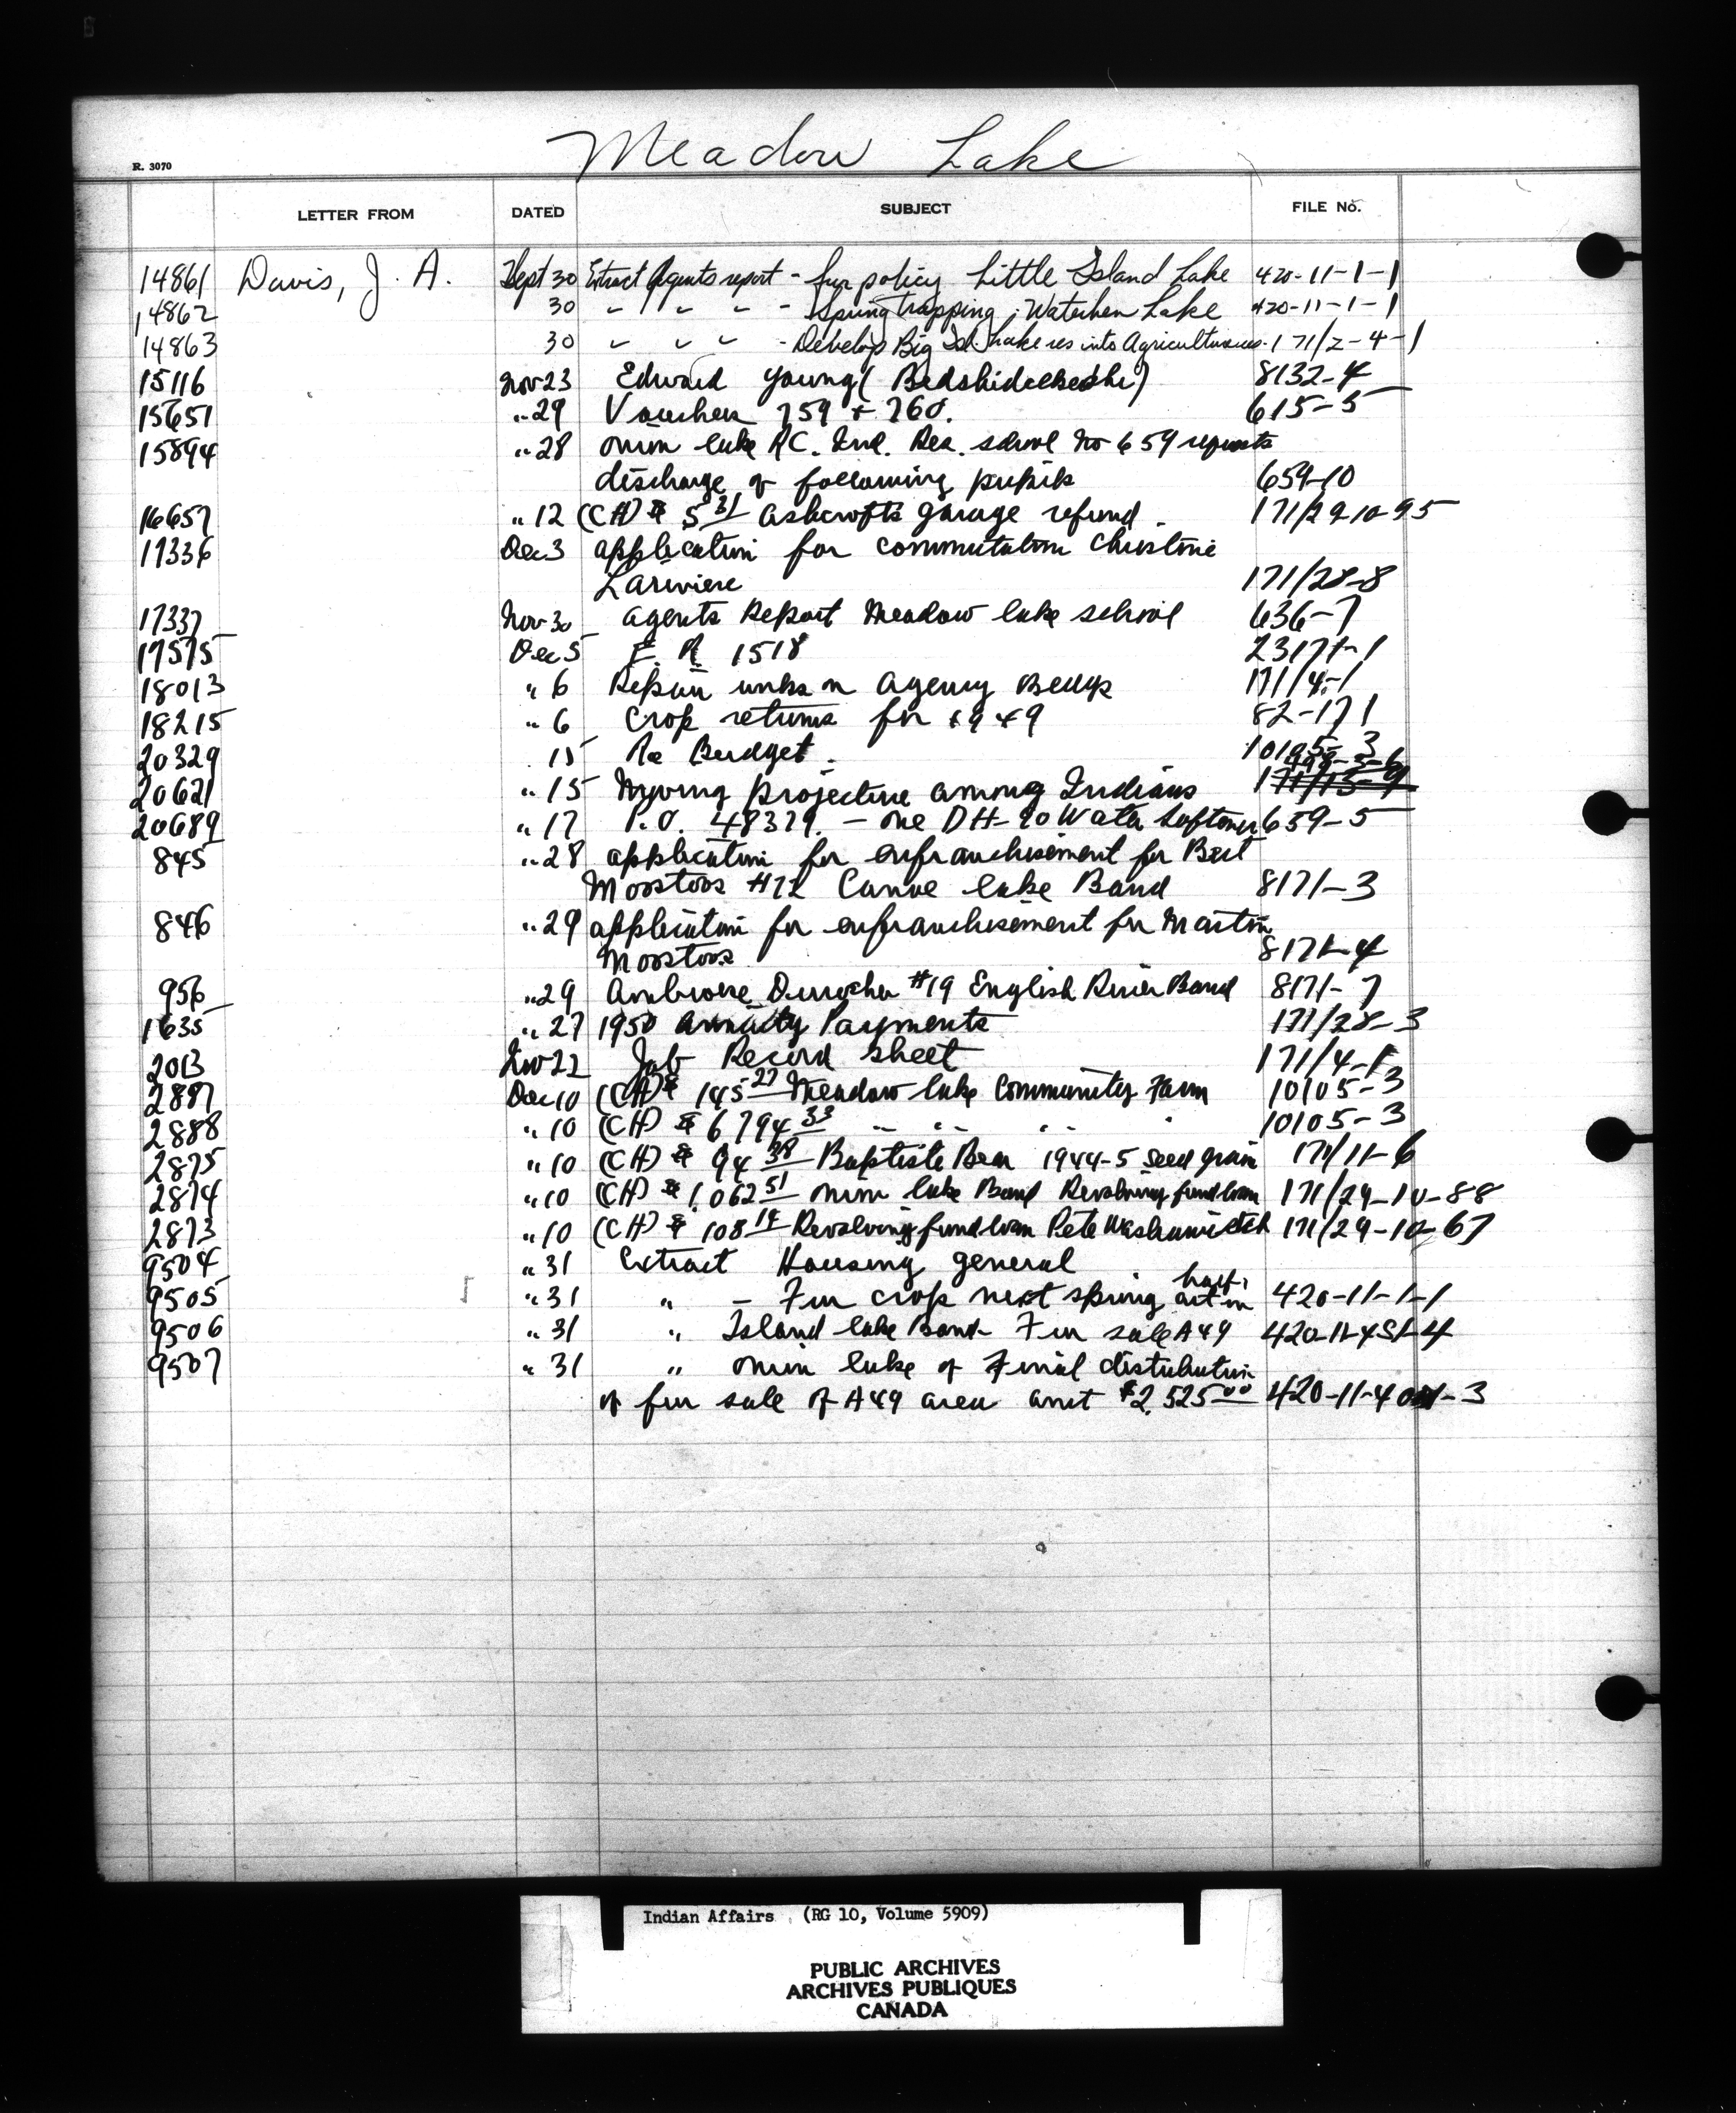 Meadow Lake
R. 3070
LETTER FROM DATED SUBJECT FILE No.
14861 Davis, J. A. Sept 30 Extract Agents report - fur policy Little Island Lake 420-11-1-1
14862 30 " " " - Spring trapping Waterhen Lake 420-11-1-1
14863 30 " " " - Develop Big Isd. Lake res into Agricultural 171/2-4-1
15116 Nov 23 Edward Young 8132-4
15651 " 29 Vouchers 759 + 760. 615-5
15894 " 28 Onion lake RC. Ind. Res. school No 659 requests
discharge of following pupils 659-10
16657 " 12 (CH) $ 5 31 Ashcrofts garage refund. 171/29-10-95
17336 Dec 3 application for commutation Christine
Lariviere 171/28-8
17337 Nov 30 agents Report Meadow lake school 636-7
17575 Dec 5 E. R. 1518
18013 " 6 Repair works on Agency Bldgs 171/4-1
18215 " 6 Crop returns for 1949 82-171
20329 15 Re Budget. 10105-3
20621 " 15 Moving projectine among Indians 171/15-9
20689 " 17 P.O. 48379. - one DH-90 Water Softener 659-5
845 " 28 application for enfranchisement for Bert
Moostoos #72 Canoe lake Band 8171-3
846 " 29 application for enfranchisement for Martin
Moostoos 8171-4
956 " 29 Ambrose Durocher #19 English River Band 8171-7
1635 " 27 1950 Annuity Payments 171/28-3
2013 Nov 22 Job Record sheet 171/4-1
2887 Dec 10 (CH) $ 145 27 Meadow lake Community Farm 10105-3
2888 " 10 (CH) $ 6794 33 " " " " 10105-3
2875 " 10 (CH) $ 94 38 Baptiste Bear 1944-5 Seed grain 171/11-6
2874 " 10 (CH) $ 1,062 51 Onion lake Band Revolving fund loan 171/29-10-88
2873 " 10 (CH) $ 108 Revolving fund loan Pete 171/29-10-67
9504 " 31 Extract Housing general
9505 " 31 " - Fur crop next spring 420-11-1-1
9506 " 31 " Island lake Band - Fur sale A49
9507 " 31 " Onion lake of Final distribution
of fur sale of A49 area amt $2,525 00
Indian Affairs (RG 10, Volume 5909)
PUBLIC ARCHIVES
ARCHIVES PUBLIQUES
CANADA